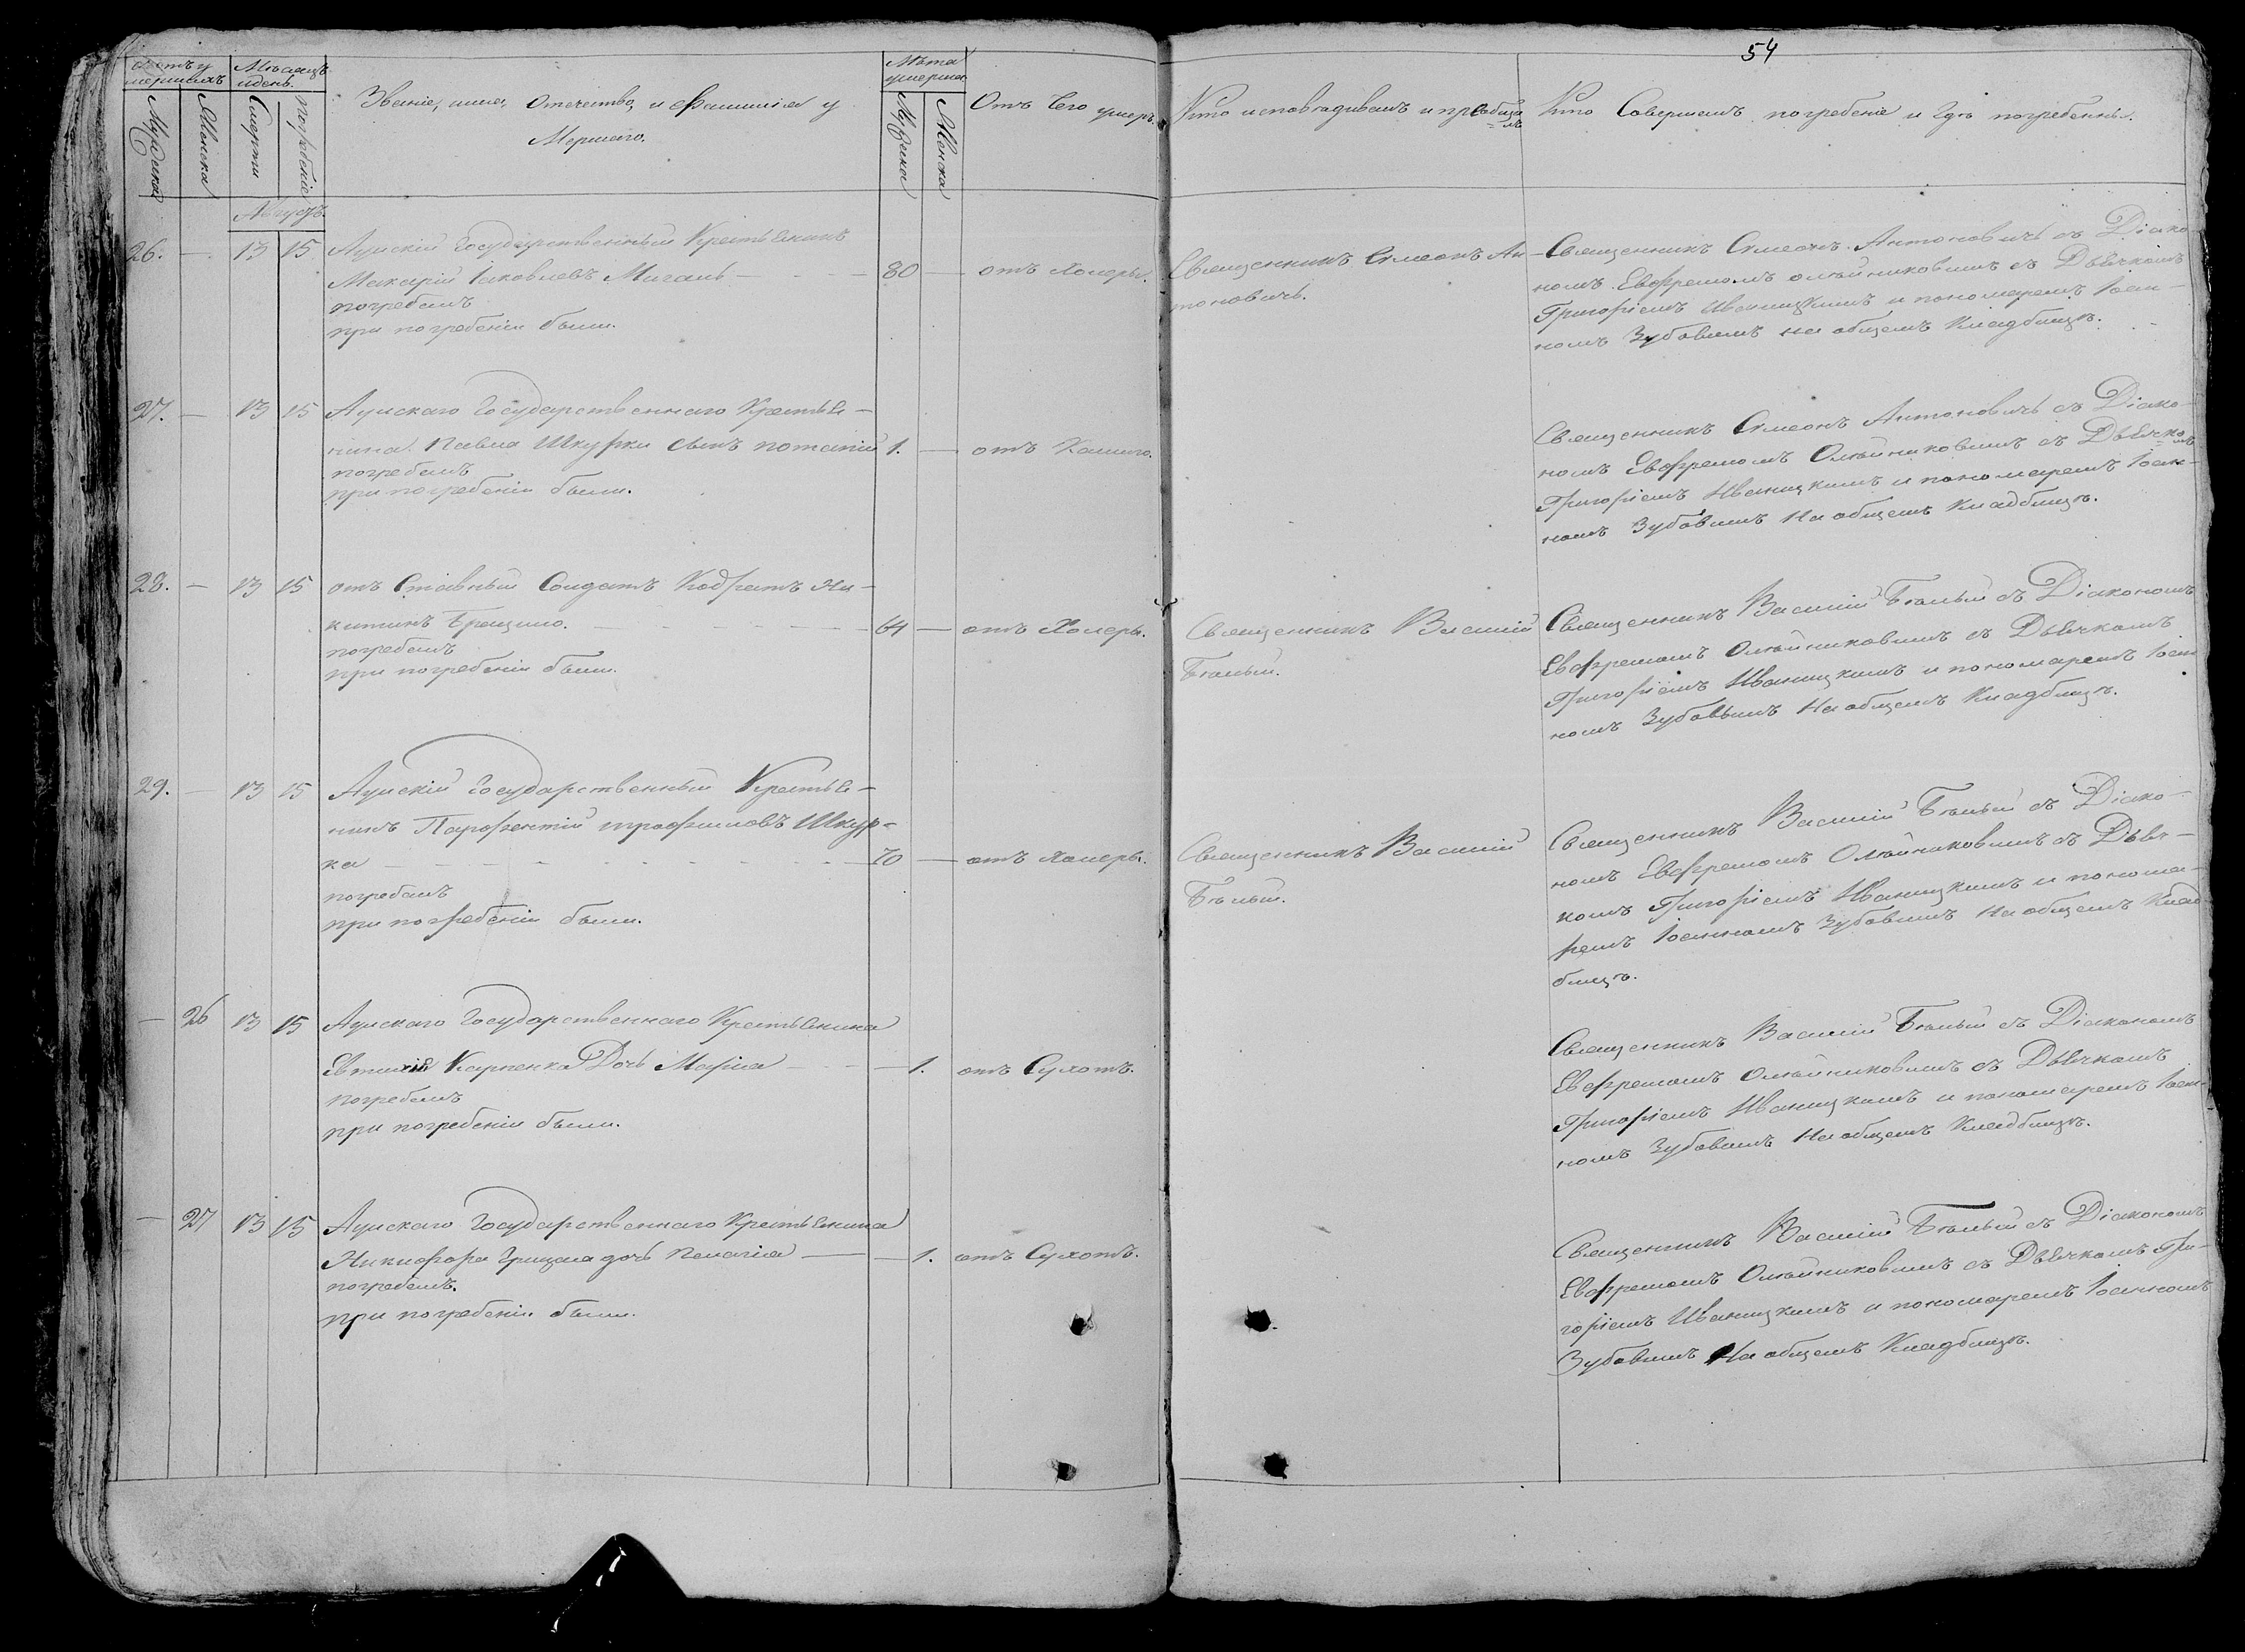 54
Счетъ у
мершихъ
Мѣсяцъ
и день.
Мужеска
Женска
Смерти
погребенія
Званіе, имя, Отечество, и фамиліа у
Мершаго.
Лѣта
умершаго
Мужска
Женска
Отъ Чего умеръ.
Кто исповѣдывалъ и пріобща
=лъ
Кто Совершалъ погребеніе и Гдѣ погребенны.
Августъ.
26. — 13 15 Аулскій Государственный Крестьенинъ
Макарій Іаковлевъ Миганъ — 80 — отъ Холеры.
погребалъ
при погребеніи были.
Священникъ Симеонъ Ан-
тоновичь.
Священникъ Симеонъ Антоновичь съ Діако-
номъ Евфремомъ Олѣйниковымъ съ Дьячкомъ
Григоріемъ Иваницкимъ и пономаремъ Іоан-
номъ Зубовымъ на общемъ Кладбищѣ.
27. — 13 15 Аулскаго Государственнаго Крестье-
нина Павла Шкурки сынъ потапій 1. — отъ Кашлю.
погребалъ
при погребеніи были.
Священникъ Симеонъ Антоновичь съ Діако-
номъ Евфремомъ Олѣйниковымъ съ Дьячкомъ
Григоріемъ Иваницкимъ и пономаремъ Іоан-
номъ Зубовымъ На общемъ Кладбищѣ.
28. — 13 15 отъ Ставный Солдатъ Кодратъ Ни-
китинъ — 64 — отъ Холеры.
погребалъ
при погребеніи были.
Священникъ Василій
Бѣлый.
Священникъ Василій Бѣлый съ Діакономъ
Евфремомъ Олѣйниковымъ съ Дьячкомъ
Григоріемъ Иваницкимъ и пономаремъ Іоан
номъ Зубовымъ На общемъ Кладбищѣ.
29. — 13 15 Аулскій Государственный Крестье-
нинъ Парфентій трофимовъ Шкур-
ка — 70 — отъ Холеры.
погребалъ
при погребеніи были.
Священникъ Василій
Бѣлый.
Священникъ Василій Бѣлый съ Діако-
номъ Евфремомъ Олѣйниковымъ съ Дьяч-
комъ Григоріемъ Иваницкимъ и понома-
ремъ Іоанномъ Зубовымъ На общемъ Клад
бищѣ.
— 26 13 15 Аулскаго Государственнаго Крестьенина
Евтихія Карпенка Дочь Маріа — 1. отъ Сухотъ.
погребалъ
при погребеніи были.
Священникъ Василій Бѣлый съ Діакономъ
Евфремомъ Олѣйниковымъ съ Дьячкомъ
Григоріемъ Иваницкимъ и пономаремъ Іоан-
номъ Зубовымъ На общемъ Кладбищѣ.
— 27 13 15 Аулскаго Государственнаго Крестьенина
Никифора Грицая дочь Пелагіа — 1. отъ Сухотъ.
погребалъ.
при погребеніи были.
Священникъ Василій Бѣлый съ Діакономъ
Евфремомъ Олѣйниковымъ съ Дьячкомъ Гри-
горіемъ Иваницкимъ и пономаремъ Іоанномъ
Зубовымъ На общемъ Кладбищѣ.